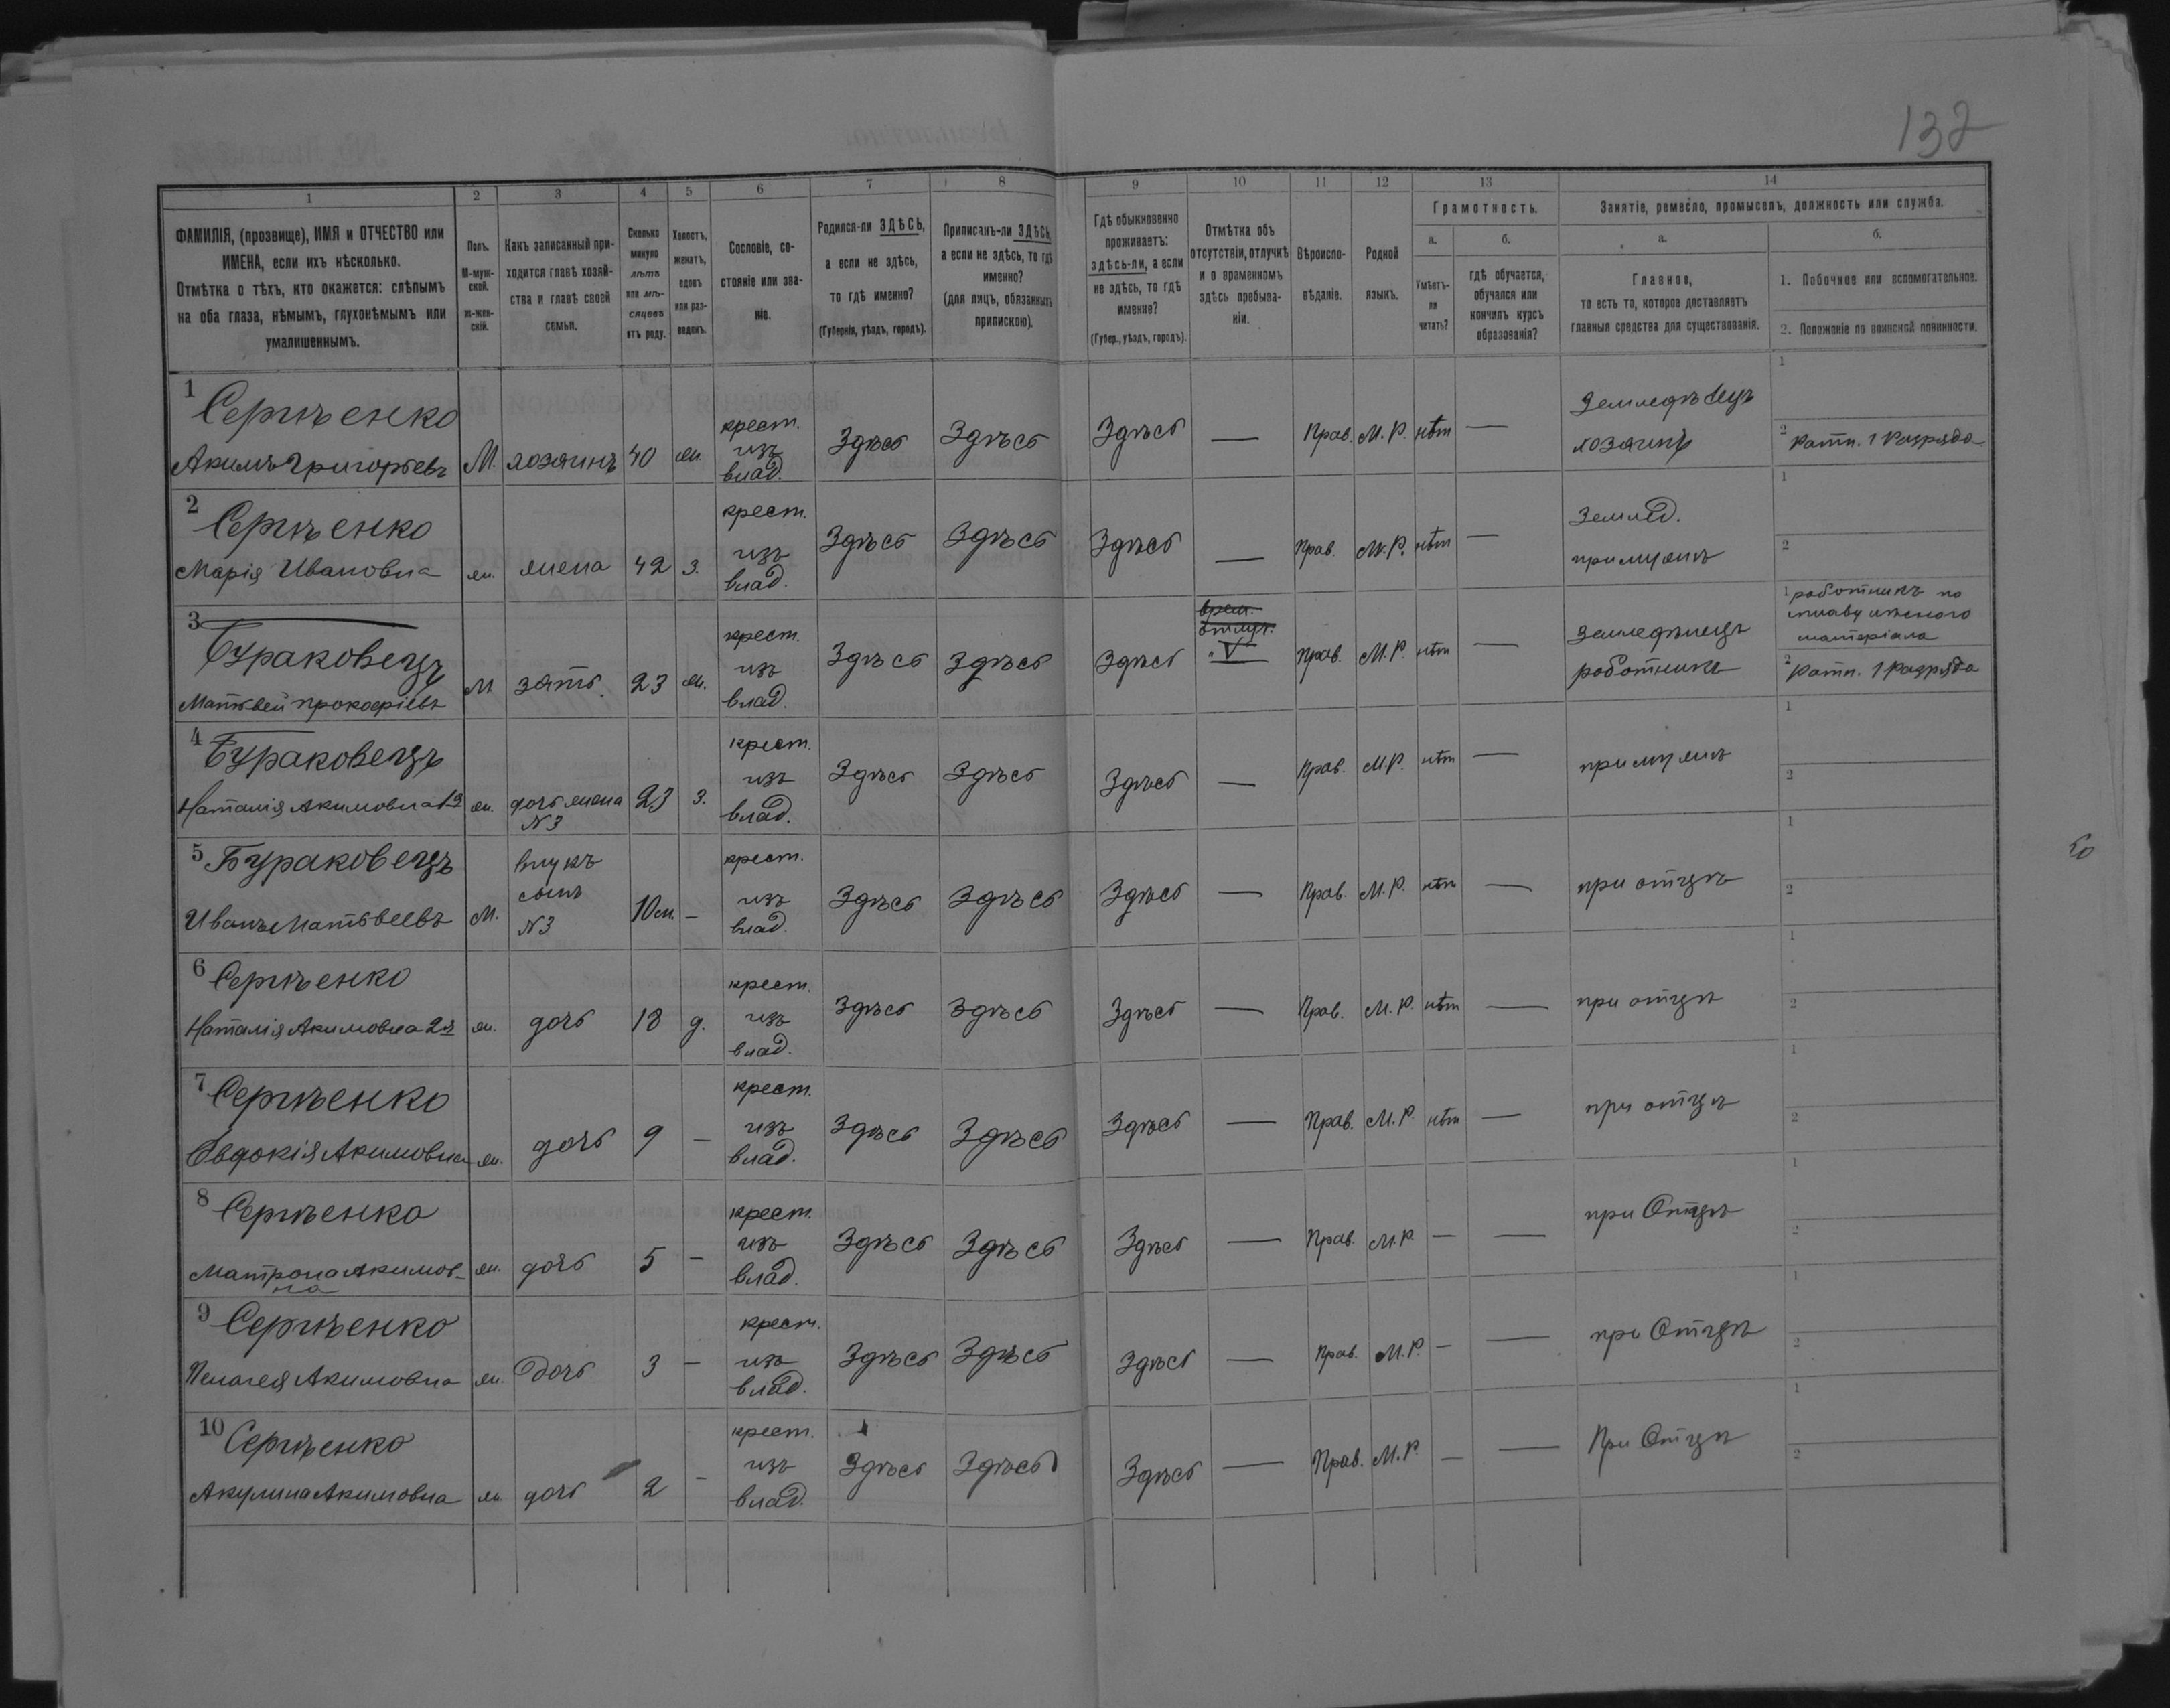 132
1 2 3 4 5 6 7 8 9 10 11 12 13 14
ФАМИЛІЯ, (прозвище), ИМЯ и ОТЧЕСТВО или
ИМЕНА, если ихъ нѣсколько.
Отмѣтка о тѣхъ, кто окажется: слѣпымъ
на оба глаза, нѣмымъ, глухонѣмымъ или
умалишеннымъ.
Полъ.
М-муж-
ской.
ж-жен-
скій.
Какъ записанный при-
ходится главѣ хозяй-
ства и главѣ своей
семьи.
Сколько
минуло
лѣтъ
или мѣ-
сяцевъ
отъ роду.
Холостъ,
женатъ,
вдовъ
или раз-
веденъ.
Сословіе, со-
стояніе или зва-
ніе.
Родился-ли ЗДѢСЬ,
а если не здѣсь,
то гдѣ именно?
(Губернія, уѣздъ, городъ).
Приписанъ-ли ЗДѢСЬ,
а если не здѣсь, то гдѣ
именно?
(для лицъ, обязанныхъ
припискою).
Гдѣ обыкновенно
проживаетъ:
здѣсь-ли, а если
не здѣсь, то гдѣ
именно?
(Губер., уѣздъ, городъ).
Отмѣтка объ
отсутствіи, отлучкѣ
и о временномъ
здѣсь пребыва-
ніи.
Вѣроиспо-
вѣданіе.
Родной
языкъ.
Грамотность.
а.
Умѣетъ-
ли
читать?
б.
гдѣ обучается,
обучался или
кончилъ курсъ
образованія?
Занятіе, ремесло, промыселъ, должность или служба.
а.
Главное,
то есть то, которое доставляетъ
главныя средства для существованія.
б.
1. Побочное или вспомогательное.
2. Положеніе по воинской повинности.
1 Сергѣенко
Акимъ Григорьевъ М. хозяинъ 40 ж. крест. изъ влад. Здѣсь Здѣсь Здѣсь — Прав. М.Р. нѣт — Земледѣлецъ хозяинъ 1
2 Ратн. 1 Разряда
2 Сергѣенко
Марія Ивановна ж. жена 42 з. крест. изъ влад. Здѣсь Здѣсь Здѣсь — Прав. М.Р. нѣт — Землед. при мужѣ 1
2
3 Бураковецъ
Матвѣй Прокофіевъ М зять. 23 ж. крест. изъ влад. Здѣсь Здѣсь Здѣсь врем. отлуч. "V" Прав. М.Р. нѣт — Земледѣлецъ работникъ 1 работникъ по сплаву лѣсного матеріала
2 Ратн. 1 Разряда
4 Бураковецъ
Наталія Акимовна 1я ж. дочь жена N3 23 з. крест. изъ влад. Здѣсь Здѣсь Здѣсь — Прав. М.Р. нѣт — при мужѣ 1
2
5 Бураковецъ
Иванъ Матвѣевъ М. внукъ сынъ N3 10 м. - крест. изъ влад. Здѣсь Здѣсь Здѣсь — Прав. М.Р. нѣт — при отцѣ 1
2
6 Сергѣенко
Наталія Акимовна 2я ж. дочь 18 д. крест. изъ влад. Здѣсь Здѣсь Здѣсь — Прав. М.Р. нѣт — при отцѣ 1
2
7 Сергѣенко
Евдокія Акимовна ж. дочь 9 - крест. изъ влад. Здѣсь Здѣсь Здѣсь — Прав. М.Р. нѣт — при отцѣ 1
2
8 Сергѣенко
Матрона Акимовна ж. дочь 5 - крест. изъ влад. Здѣсь Здѣсь Здѣсь — Прав. М.Р. — — при Отцѣ 1
2
9 Сергѣенко
Пелагея Акимовна ж. Дочь 3 - крест. изъ влад. Здѣсь Здѣсь Здѣсь — Прав. М.Р. — — при Отцѣ 1
2
10 Сергѣенко
Акулина Акимовна ж. дочь 2 - крест. изъ влад. Здѣсь Здѣсь Здѣсь — Прав. М.Р. — — При Отцѣ 1
2